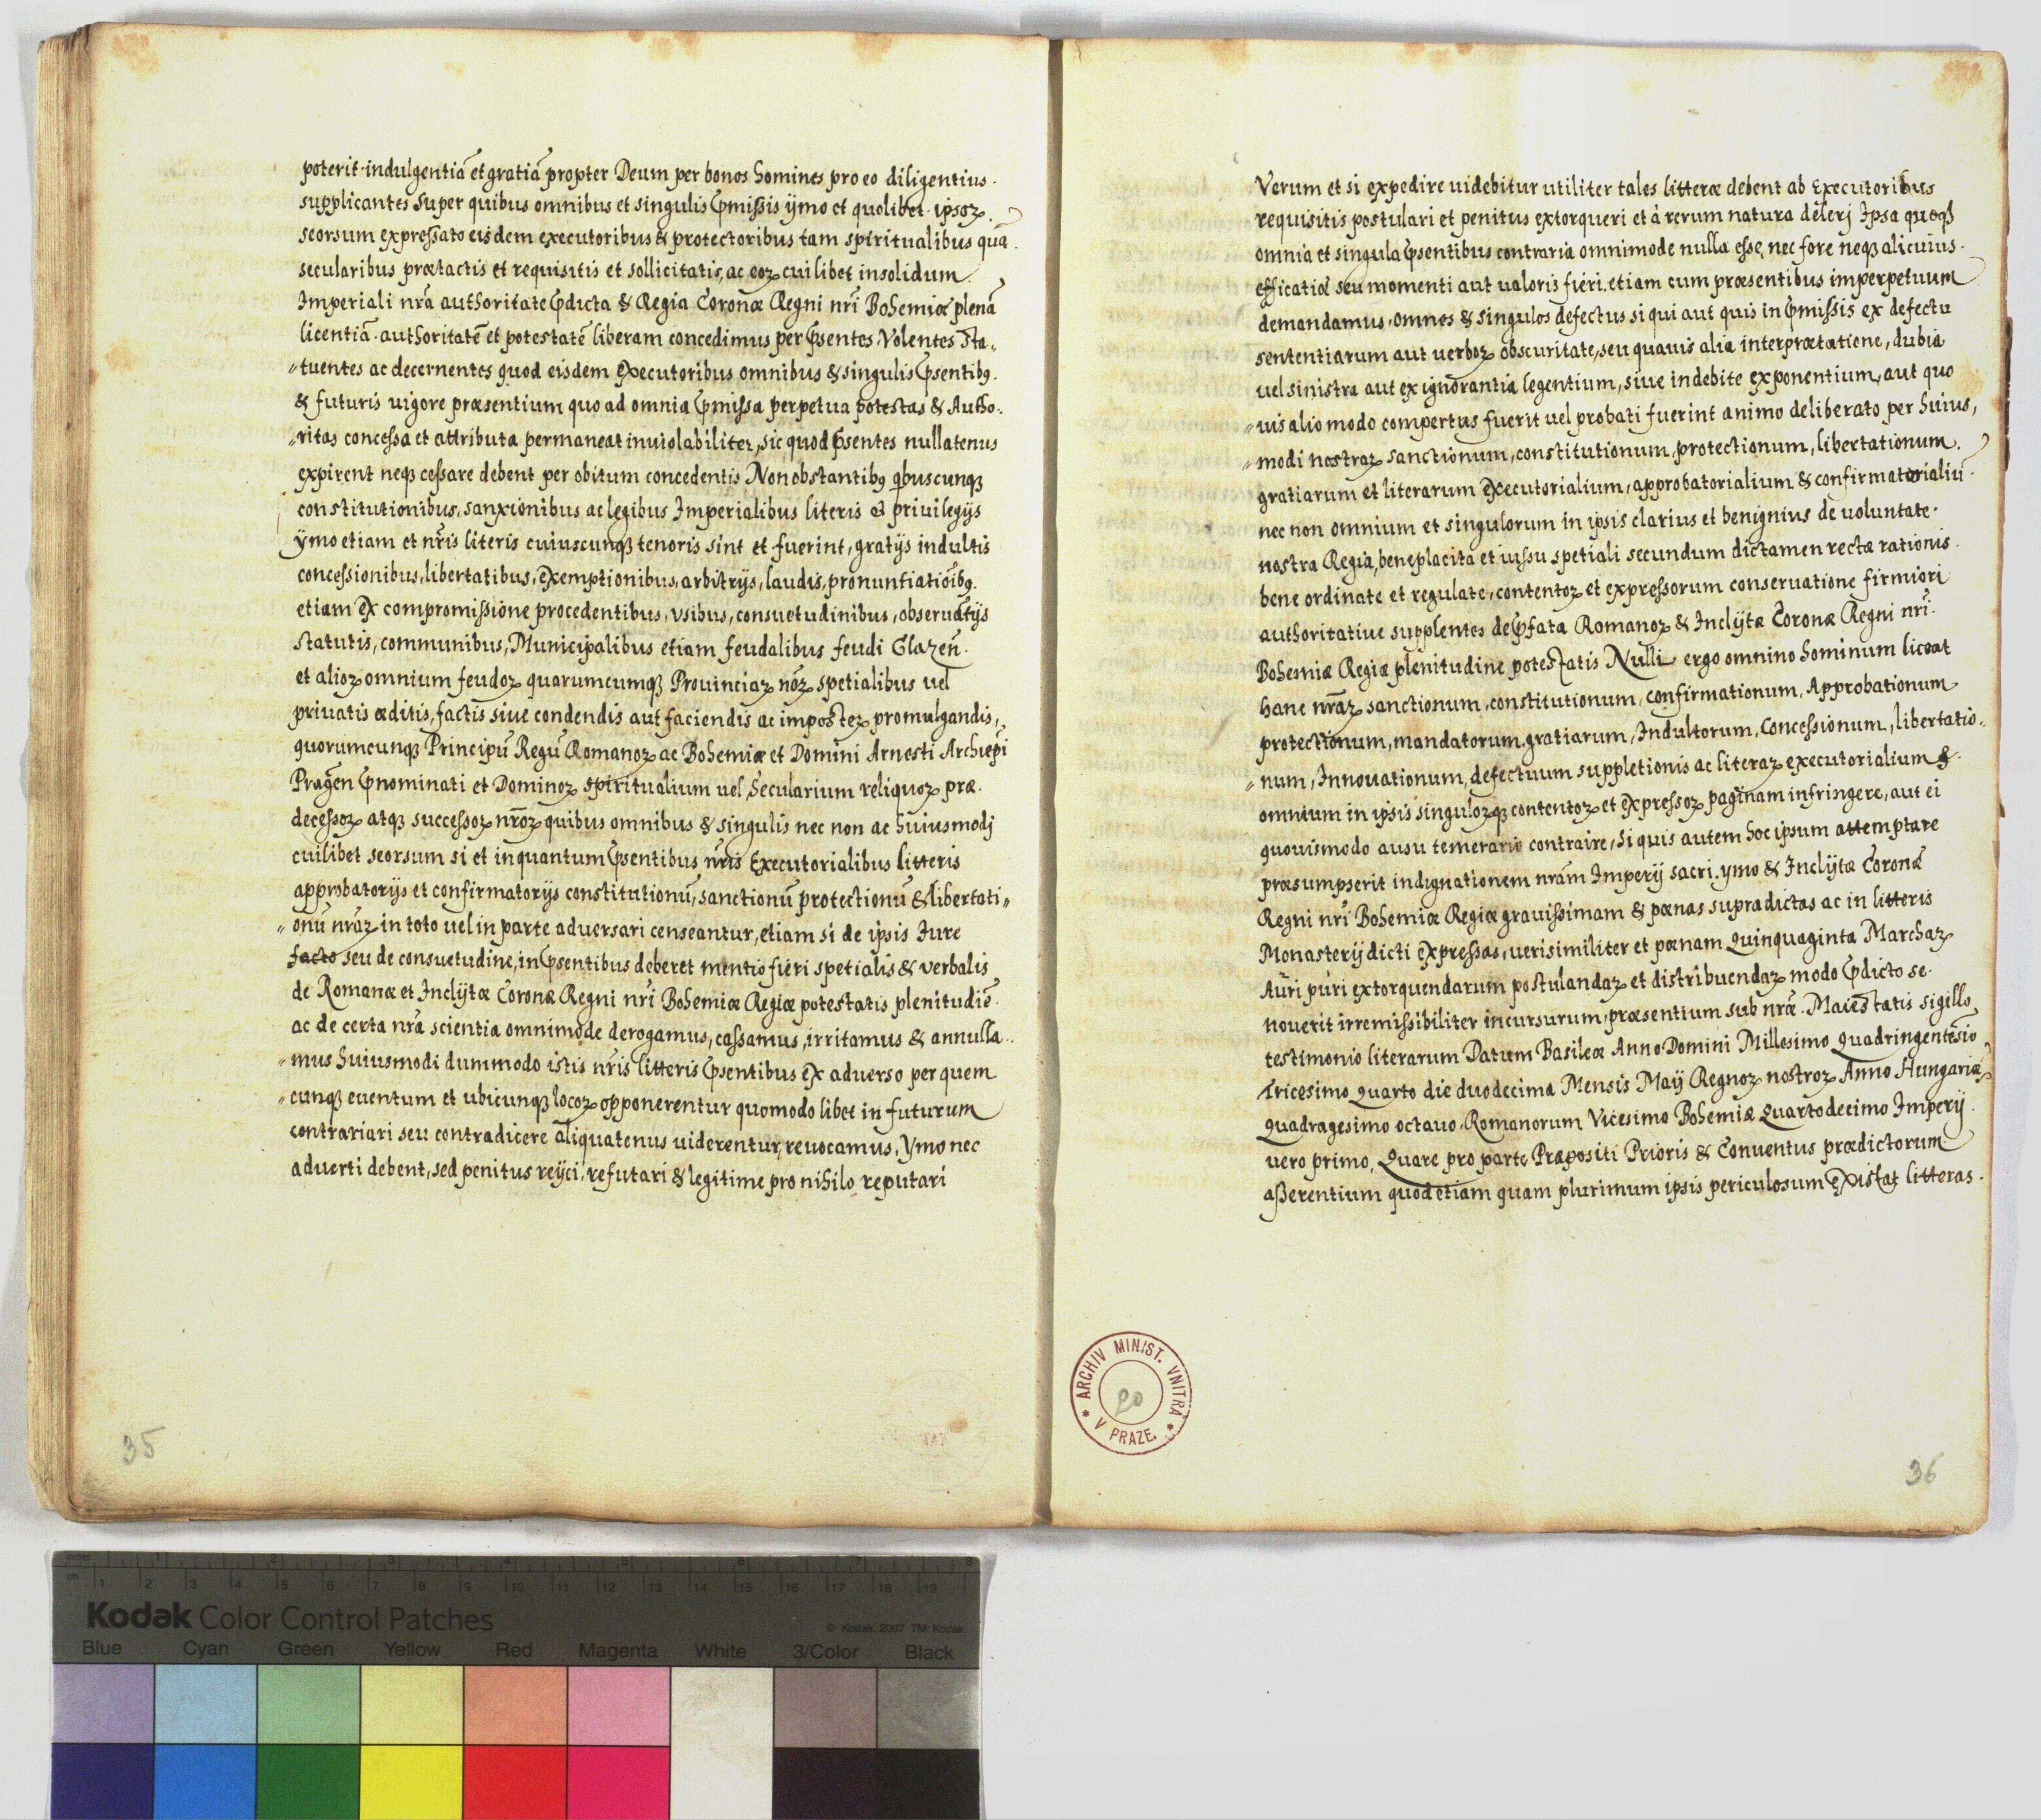 poterit indulgentiā et gratiā propter Deum per bonos homines pro eo diligentius.
supplicantes super quibus omnibus et singulis p̄missis ymo et quolibet ipsoꝝ.
seorsum expressato eisdem executoribus & protectoribus tam spiritualibus quā.
secularibus prætactis et requisitis et sollicitatis, ac eoꝝ cuilibet insolidum
Imperiali nrā authoritate p̄dicta & Regia Coronæ Regni nrī Bohemiæ plenā
licentiā authoritatē et potestatē liberam concedimus per p̄sentes, Volentes Sta„
„tuentes ac decernentes quod eisdem Executoribus omnibus & singulis p̄sentibꝯ.
& futuris vigore præsentium quo ad omnia p̄missa perpetua potestas & Autho„
„ritas concessa et attributa permaneat inviolabiliter, sic quod p̄sentes nullatenus
expirent neqꝫ cessare debent per obitum concedentis Non obstantibꝯ qbuscunqꝫ
constitutionibus, sanxionibus ac legibus Imperialibus literis et privilegijs
ymo etiam et nrīs literis cuiuscunqꝫ tenoris sint et fuerint, gratijs indultis
concessionibus, libertatibus, Exemptionibus, arbitrijs, laudis, pronuntiatiōibꝯ.
etiam Ex compromissione procedentibus, usibus, consuetudinibus, observātijs
statutis, communibus, Municipalibus etiam feudalibus feudi Glazeñ.
et alioꝝ omnium feudoꝝ quarumcumqꝫ Provinciaꝝ nōꝝ spetialibus vel
privatis æditis, factis sive condendis aut faciendis ac imposteꝝ promulgandis,
quorumcunqꝫ Principū Regū Romanoꝝ ac Bohemiæ et Domini Arnesti Archiepī
Pragēn p̄nominati et Dominoꝝ spiritualium vel Secularium reliquoꝝ præ.
decessoꝝ atqꝫ successoꝝ nrōꝝ quibus omnibus & singulis nec non ac huiusmodj
cuilibet seorsum si et inquantum p̄sentibus nrīs Executorialibus litteris
approbatorijs et confirmatorijs constitutionū, sanctionū protectionū & libertati„
„onū nrāꝝ in toto vel in parte adversari censeantur, etiam si de ipsis Jure
facto seu de consuetudine, in p̄sentibus deberet mentio fieri spetialis & verbalis
de Romanæ et Inclytæ Coronæ Regni nrī Bohemiæ Regiæ potestatis plenitudiē.
ac de certa nrā scientia omnimode derogamus, cassamus, irritamus & annulla„
„mus huiusmodi dummodo istis nrīs litteris p̄sentibus Ex adverso per quem
„cunqꝫ eventum et ubicunqꝫ locoꝝ opponerentur quomodo libet in futurum
contrariari seu contradicere aliquatenus viderentur, revocamus, Ymo nec
adverti debent, sed penitus reijci, refutari & legitime pro nihilo reputari
35
Verum et si expedire videbitur utiliter tales litteræ debent ab Executoribus
requisitis postulari et penitus extorqueri et à rerum natura deleri Ipsa quoqꝫ
omnia et singula p̄sentibus contraria omnimode nulla esse, nec fore neqꝫ alicuius.
efficatiæ seu momenti aut valoris fieri. etiam cum præsentibus imperpetuum
demandamus, omnes & singulos defectus si qui aut quis in p̄missis ex defectu
sententiarum aut verboꝝ obscuritate, seu quavis alia interprætatione, dubia
vel sinistra aut ex ignorantia legentium, sive indebite exponentium, aut quo
„vis alio modo compertus fuerit vel probati fuerint animo deliberato per huius„
„modi nostraꝝ sanctionum, constitutionum, protectionum, libertationum.
gratiarum et literarum Executorialium, approbatorialium & confirmatorialiū
nec non omnium et singulorum in ipsis clarius et benignius de voluntate.
nostra Regia, beneplacita et iussu spetiali secundum dictamen rectæ rationis.
bene ordinate et regulate, contentoꝝ et expressorum conservatione firmiori
authoritative supplentes de p̄fata Romanoꝝ & Inclytæ Coronæ Regni nrī.
Bohemiæ Regiæ plenitudine potestatis Nulli ergo omnino hominum liceat
hanc nrāꝝ sanctionum, constitutionum, confirmationum, Approbationum
protectionum, mandatorum, gratiarum, Indultorum, Concessionum, libertatio„
„num, Innovationum, defectuum suppletionis ac literaꝝ executorialium &
omnium in ipsis singuloꝝqꝫ contentoꝝ et Expressoꝝ paginam infringere, aut ei
quovismodo ausu temerario contraire, Si quis autem hoc ipsum attemptare
præsumpserit indignationem nrām Imperij sacri. ymo & Inclytæ Coronæ
Regni nrī Bohemiæ Regiæ gravissimam & pœnas supradictas ac in litteris
Monasterij dicti Expressas, verisimiliter et pœnam Quinquaginta Marchaꝝ
Auri puri extorquendarum postulandaꝝ et distribuendaꝝ modo p̄dicto se.
noverit irremissibiliter incursurum, præsentium sub nrǣ Maiestatis sigillo
testimonio literarum Datum Basileæ Anno Domini Millesimo Quadringentēsio
Tricesimo Quarto die duodecima Mensis Maij Regnoꝝ nostroꝝ Anno Hungariæ
Quadragesimo octavo, Romanorum Vicesimo Bohemiæ Quartodecimo Imperij
vero primo, Quare pro parte Præpositi Prioris & Conventus prædictorum
asserentium quod etiam quam plurimum ipsis periculosum Existat litteras.
ARCHIV MINIST. VNITRA V PRAZE.
20
36
inches
cm 1 2 3 4 5 6 7 8 9 10 11 12 13 14 15 16 17 18 19
Kodak Color Control Patches
© Kodak, 2007 TM: Kodak
Blue Cyan Green Yellow Red Magenta White 3/Color Black